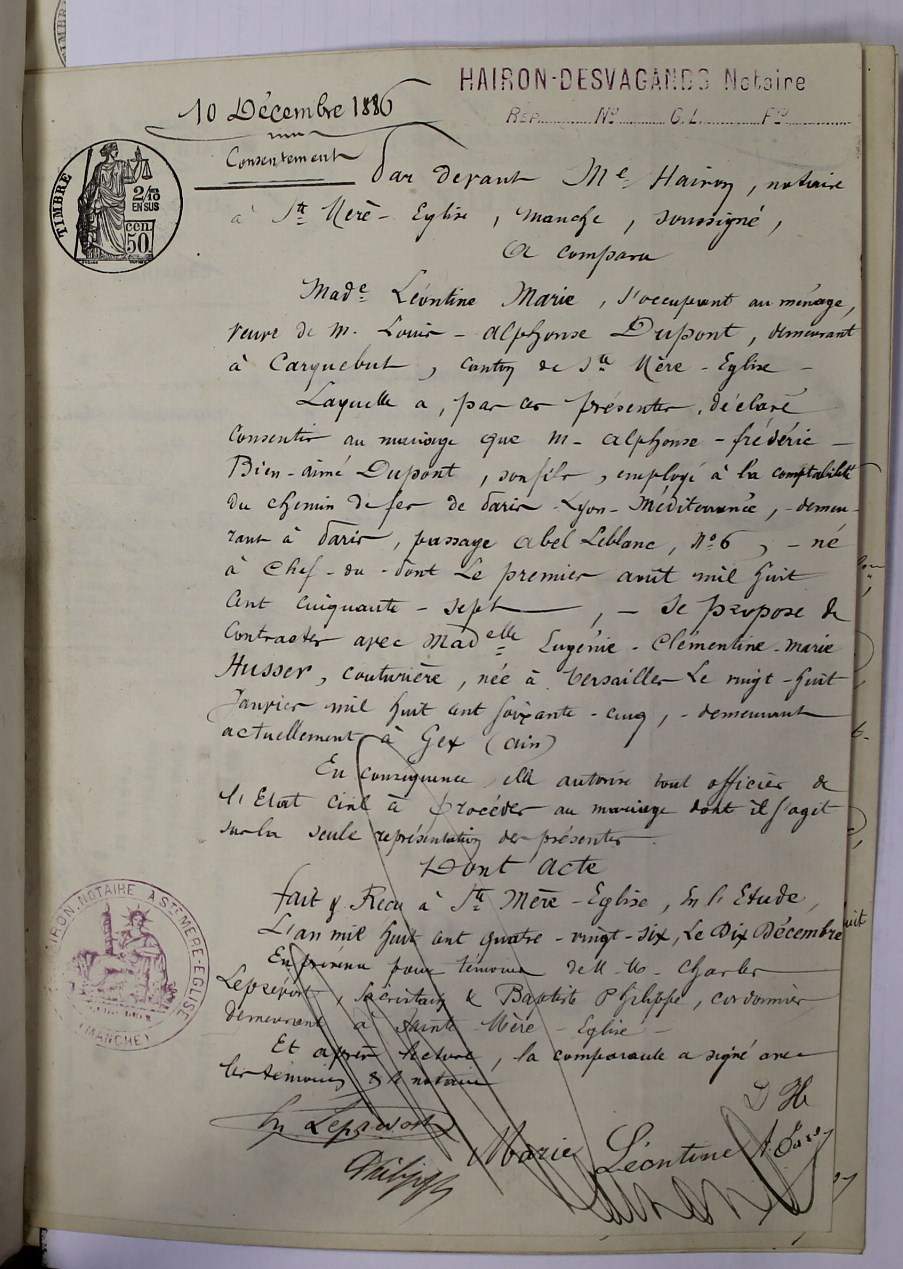 HAIRON-DESVAGANDS Notaire
REP. Nº G.L. Fº
10 Décembre 1886
Consentement
TIMBRE
2/10
EN SUS
50 CEN
Par devant Me Hairon, notaire
à Ste Mère-Eglise, manche, soussigné,
A comparu
Made Léontine Marie, s'occupant au ménage,
veuve de M. Louis-alphonse Dupont, demeurant
à Carquebut, canton de Ste Mère-Eglise -
Laquelle a, par ces présentes, déclaré
consentir au mariage que M. alphonse-frédéric-
Bien-aimé Dupont, son fils, employé à la comptabilité
du chemin de fer de Paris-Lyon-Méditerranée, -demeu-
rant à Paris, passage Abel Leblanc, Nº 6, - né
à Chef-du-Pont Le premier août mil huit
cent cinquante-sept, - se propose de
contracter avec Madelle Eugénie-Clémentine-marie
Husser, couturière, née à Versailles Le vingt-huit
Janvier mil huit cent soixante-cinq, -demeurant
actuellement à Gex (ain)
En conséquence, elle autorise tout officier de
l'Etat civil à procéder au mariage dont il s'agit
sur la seule représentation des présentes.
Dont acte
fait & Reçu à Ste Mère-Eglise, En l'Etude,
L'an mil huit cent quatre-vingt-six, Le Dix Décembre
En présence pour témoins de M.M. Charles
Leprévost, sacristain & Baptiste Philippe, cordonnier
demeurant à Sainte Mère-Eglise -
Et après lecture, la comparante a signé avec
les témoins & le notaire
HAIRON, NOTAIRE A STE MERE-EGLISE
(MANCHE)
Leprévost
Marie Léontine
Philippe